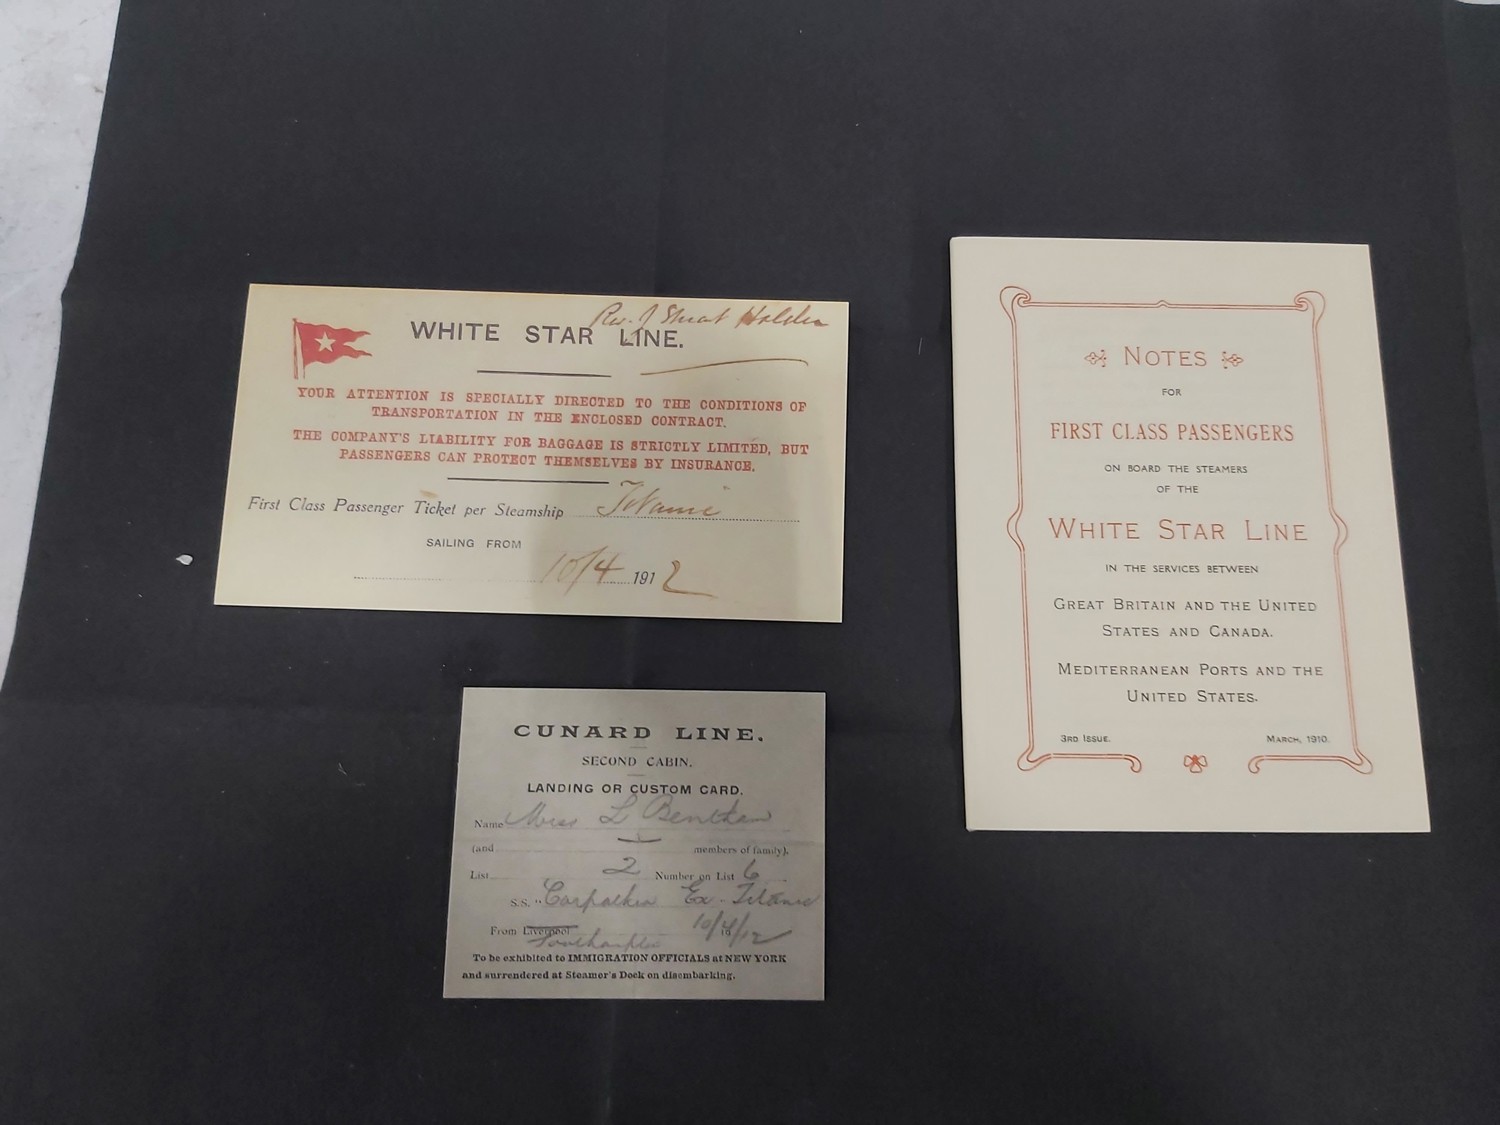 Rev. J Stuart Holden
WHITE STAR LINE.
YOUR ATTENTION IS SPECIALLY DIRECTED TO THE CONDITIONS OF
TRANSPORTATION IN THE ENCLOSED CONTRACT.
THE COMPANY'S LIABILITY FOR BAGGAGE IS STRICTLY LIMITED, BUT
PASSENGERS CAN PROTECT THEMSELVES BY INSURANCE.
First Class Passenger Ticket per Steamship Titanic
SAILING FROM
10/4 1912
CUNARD LINE.
SECOND CABIN.
LANDING OR CUSTOM CARD.
Name Miss L Bentham
(and members of family),
List 2 Number on List 6
S.S. "Carpathia Ex. Titanic
From Liverpool 10/4/12
Southampton
To be exhibited to IMMIGRATION OFFICIALS at NEW YORK
and surrendered at Steamer's Dock on disembarking.
NOTES
FOR
FIRST CLASS PASSENGERS
ON BOARD THE STEAMERS
OF THE
WHITE STAR LINE
IN THE SERVICES BETWEEN
GREAT BRITAIN AND THE UNITED
STATES AND CANADA.
MEDITERRANEAN PORTS AND THE
UNITED STATES.
3RD ISSUE. MARCH, 1910.